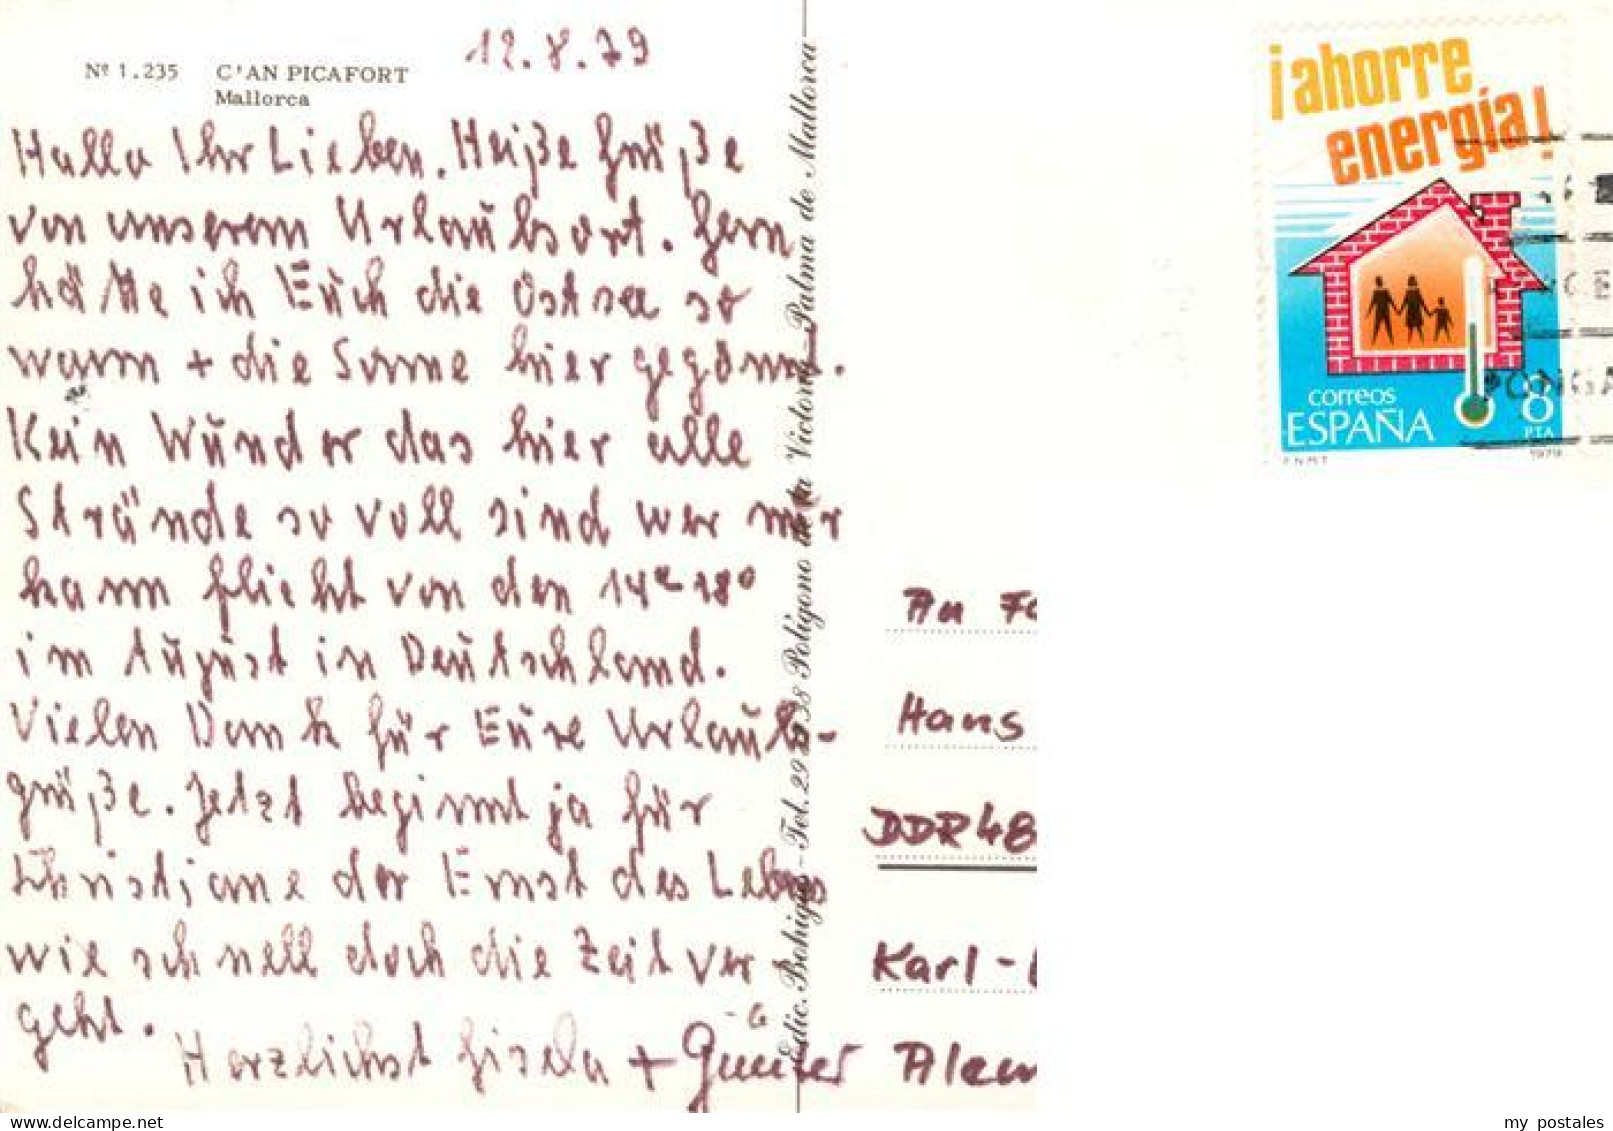 12.8.79
Nº 1.235 C'AN PICAFORT
Mallorca
Hallo Ihr Lieben. Heiße Grüße
von unserem Urlaubsort. Gern
hätte ich Euch die Ostsee so
warm + die Sonne hier gegönnt.
Kein Wunder das hier alle
Strände so voll sind wer nur
kann flieht von den 14°-18°
im August in Deutschland.
Vielen Dank für Eure Urlaub-
grüße. Jetzt beginnt ja für
Christiane der Ernst des Lebens
wie schnell doch die Zeit ver
geht.
Herzlichst Gisela + Günter
Edic. Bohigas - Tel. 29 Polígono de la Victoria - Palma de Mallorca
¡ahorre
energía!
correos
ESPAÑA
8
PTA
F.N.M.T
1979
An
Hans
DDR 48
Karl-
my_postales